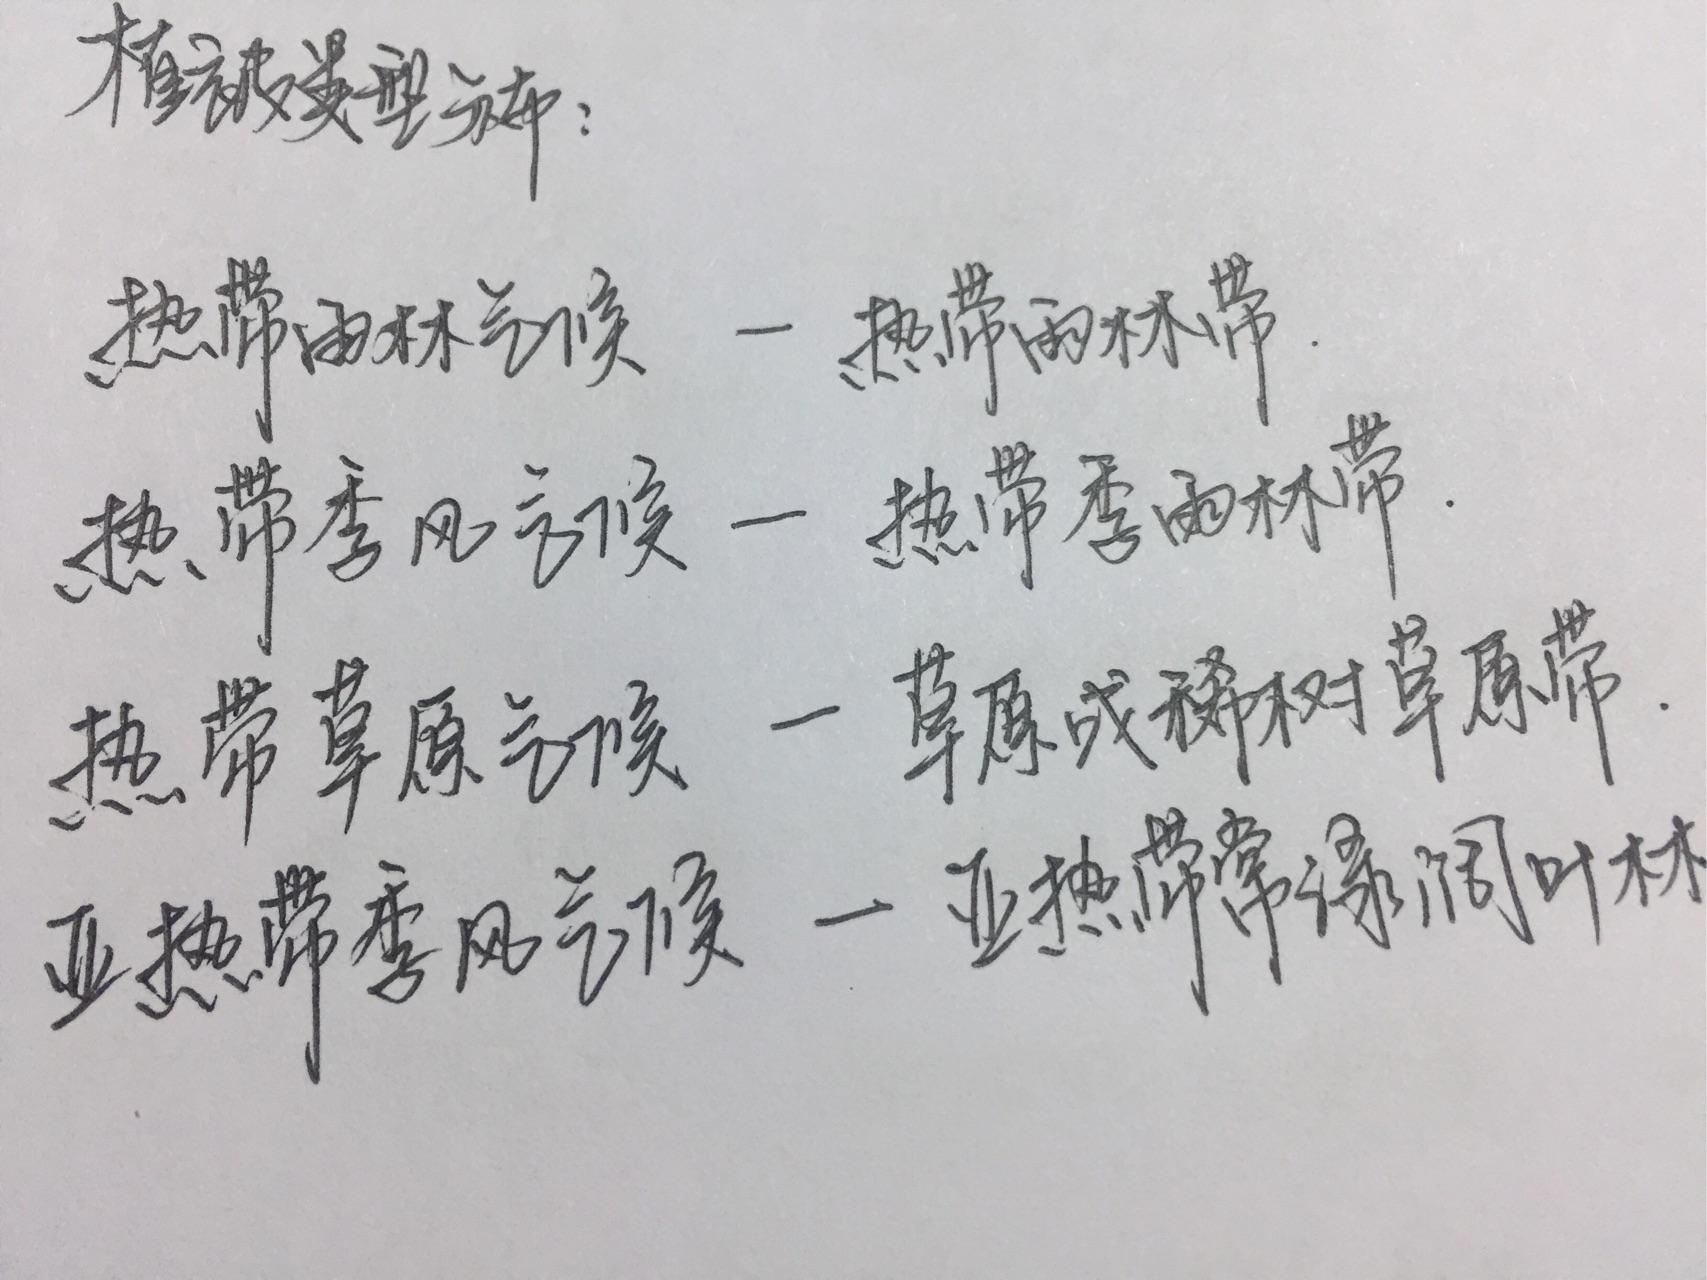 植被类型分布:
热带雨林气候 — 热带雨林带.
热带季风气候 — 热带季雨林带.
热带草原气候 — 草原或稀树草原带.
亚热带季风气候 — 亚热带常绿阔叶林